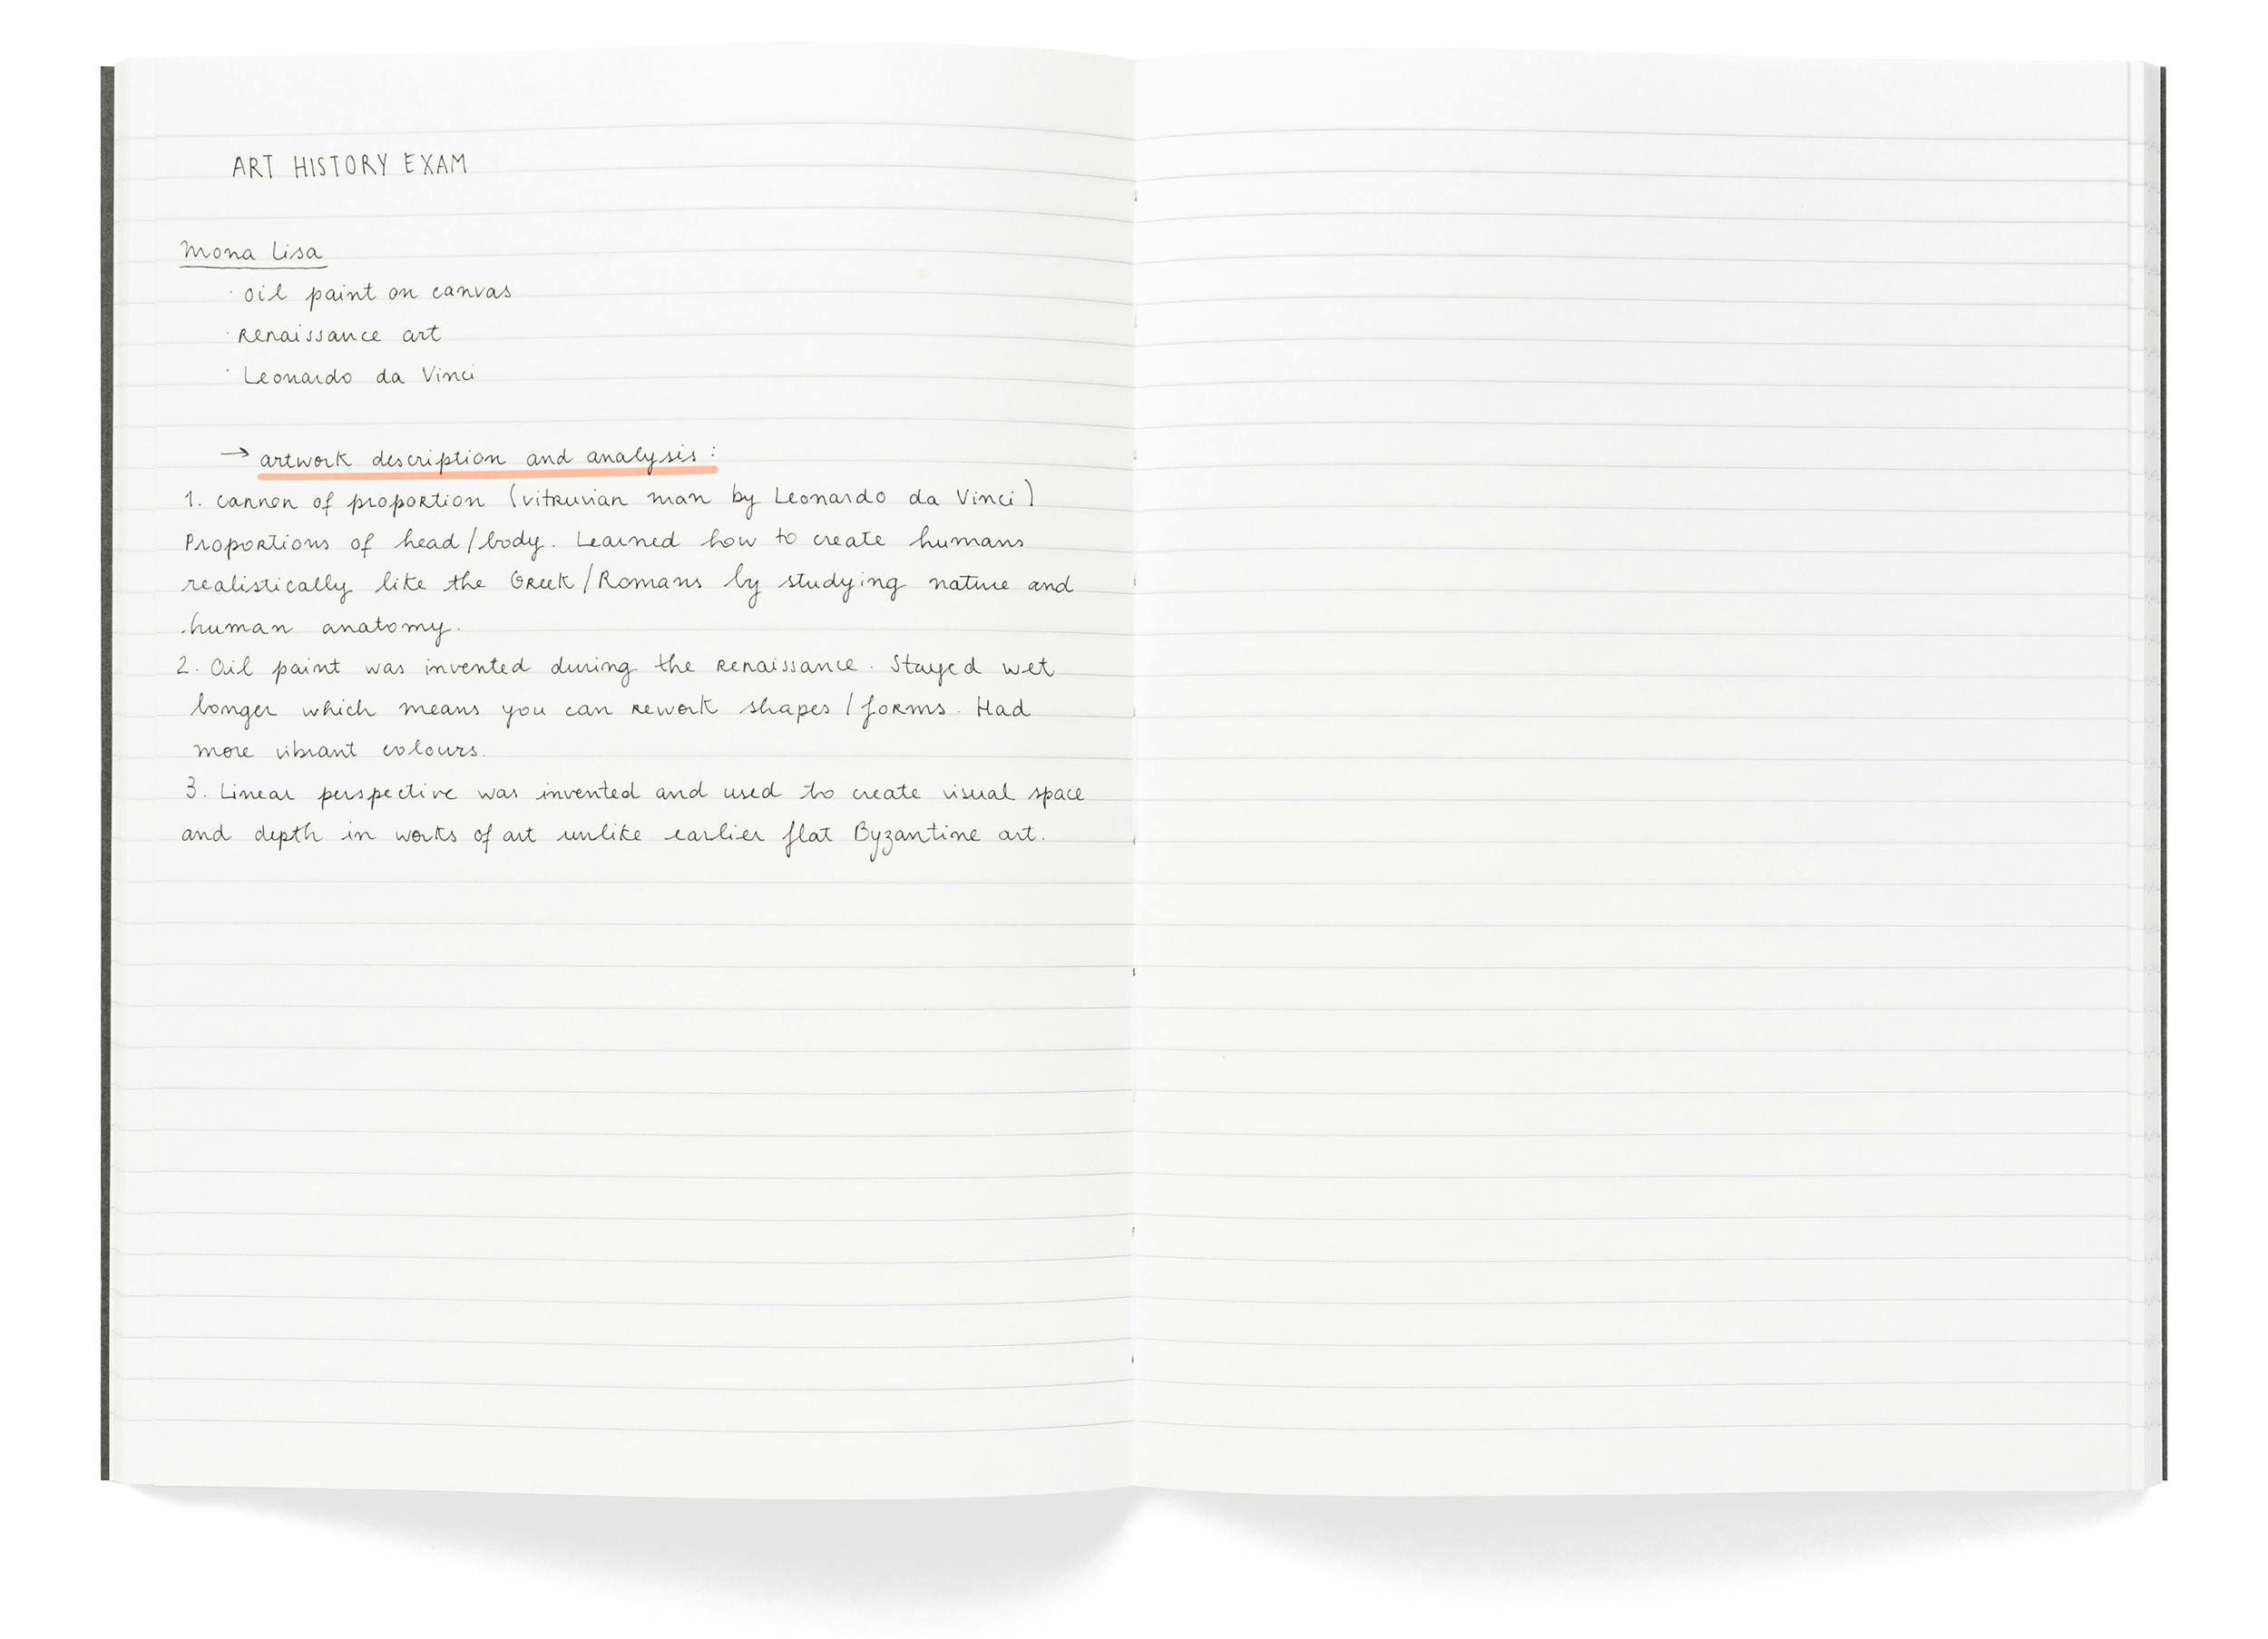 ART HISTORY EXAM
Mona Lisa
· oil paint on canvas
· Renaissance art
· Leonardo da Vinci
→ artwork description and analysis:
1. cannon of proportion (vitruvian man by Leonardo da Vinci)
Proportions of head/body. Learned how to create humans
realistically like the Greek/Romans by studying nature and
human anatomy.
2. Oil paint was invented during the Renaissance. Stayed wet
longer which means you can rework shapes/forms. Had
more vibrant colours.
3. Linear perspective was invented and used to create visual space
and depth in works of art unlike earlier flat Byzantine art.